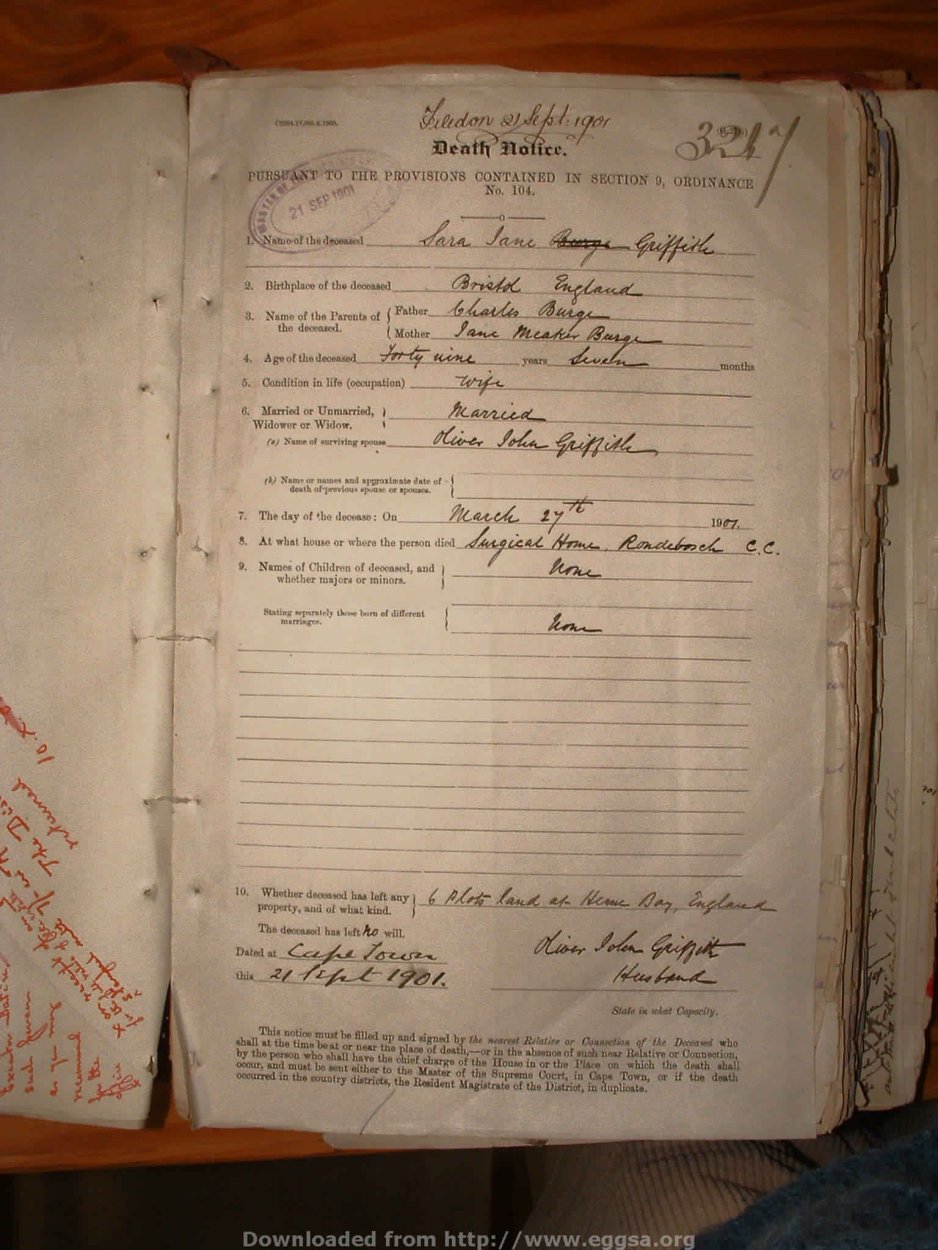 Filed on 21 Sept. 1901
3247
Death Notice.
PURSUANT TO THE PROVISIONS CONTAINED IN SECTION 9, ORDINANCE
No. 104.
MASTER OF THE
21 SEP 1901
1. Name of the deceased Sara Jane Burge Griffith
2. Birthplace of the deceased Bristol England
3. Name of the Parents of the deceased. Father Charles Burge
Mother Jane Meaker Burge
4. Age of the deceased Forty nine years Seven months
5. Condition in life (occupation) Wife
6. Married or Unmarried, Widower or Widow. Married
(a) Name of surviving spouse Oliver John Griffith
(b) Name or names and approximate date of
death of previous spouse or spouses.
7. The day of the decease: On March 27th 1901.
8. At what house or where the person died Surgical Home, Rondebosch C.C.
9. Names of Children of deceased, and
whether majors or minors. None
Stating separately those born of different
marriages. None
10. Whether deceased has left any
property, and of what kind. 6 Plots land at Herne Bay, England
The deceased has left No will.
Dated at Cape Town Oliver John Griffith
this 21 Sept 1901. Husband
State in what Capacity.
This notice must be filled up and signed by the nearest Relative or Connection of the Deceased who
shall at the time be at or near the place of death,—or in the absence of such near Relative or Connection,
by the person who shall have the chief charge of the House in or the Place on which the death shall
occur, and must be sent either to the Master of the Supreme Court, in Cape Town, or if the death
occurred in the country districts, the Resident Magistrate of the District, in duplicate.
Downloaded from http://www.eggsa.org